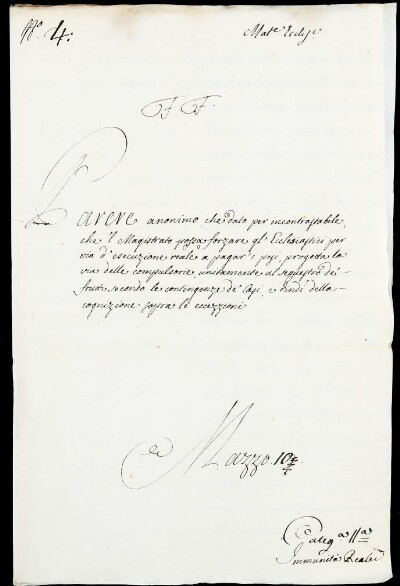 4.
Mat.e Eccles.e
F F.
Parere anonimo, che dato per incontrastabile,
che 'l Magistrato possa forzare gl' Eclesiastici per
via d' esecuzione reale a pagar' i pesi, progetta la
via delle compulsorie, unitamente al sequestro de'
frutti secondo le contingenze de' Casi, e quindi della
cognizione sopra le eccezioni
Mazzo. 10
Categ.a 11.a
Immunità Reale